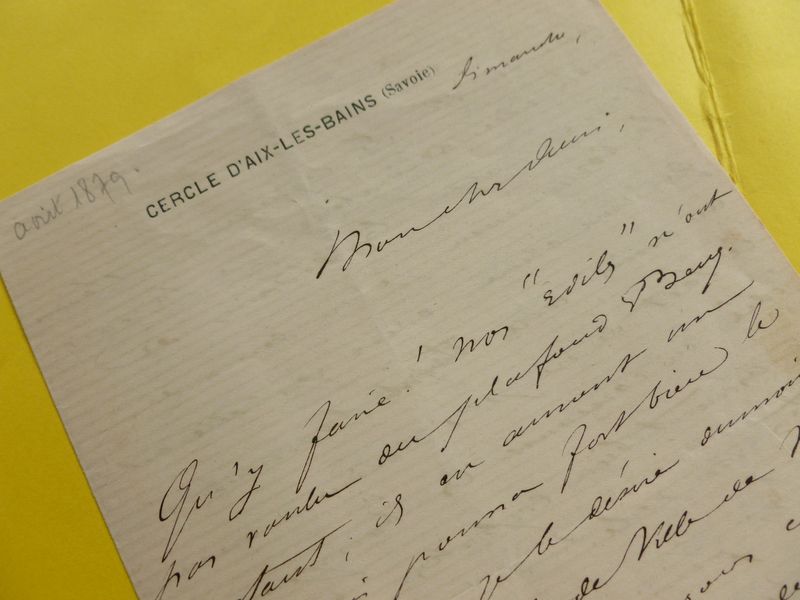 août 1879.
CERCLE D'AIX-LES-BAINS (Savoie)
Dimanche,
Mon cher ami,
Qu'y faire! nos "édiles" n'ont
pas voulu du plafond Beny.
tant, ils en aiment un
pourra fort bien le
je le désire du moins
de Ville de